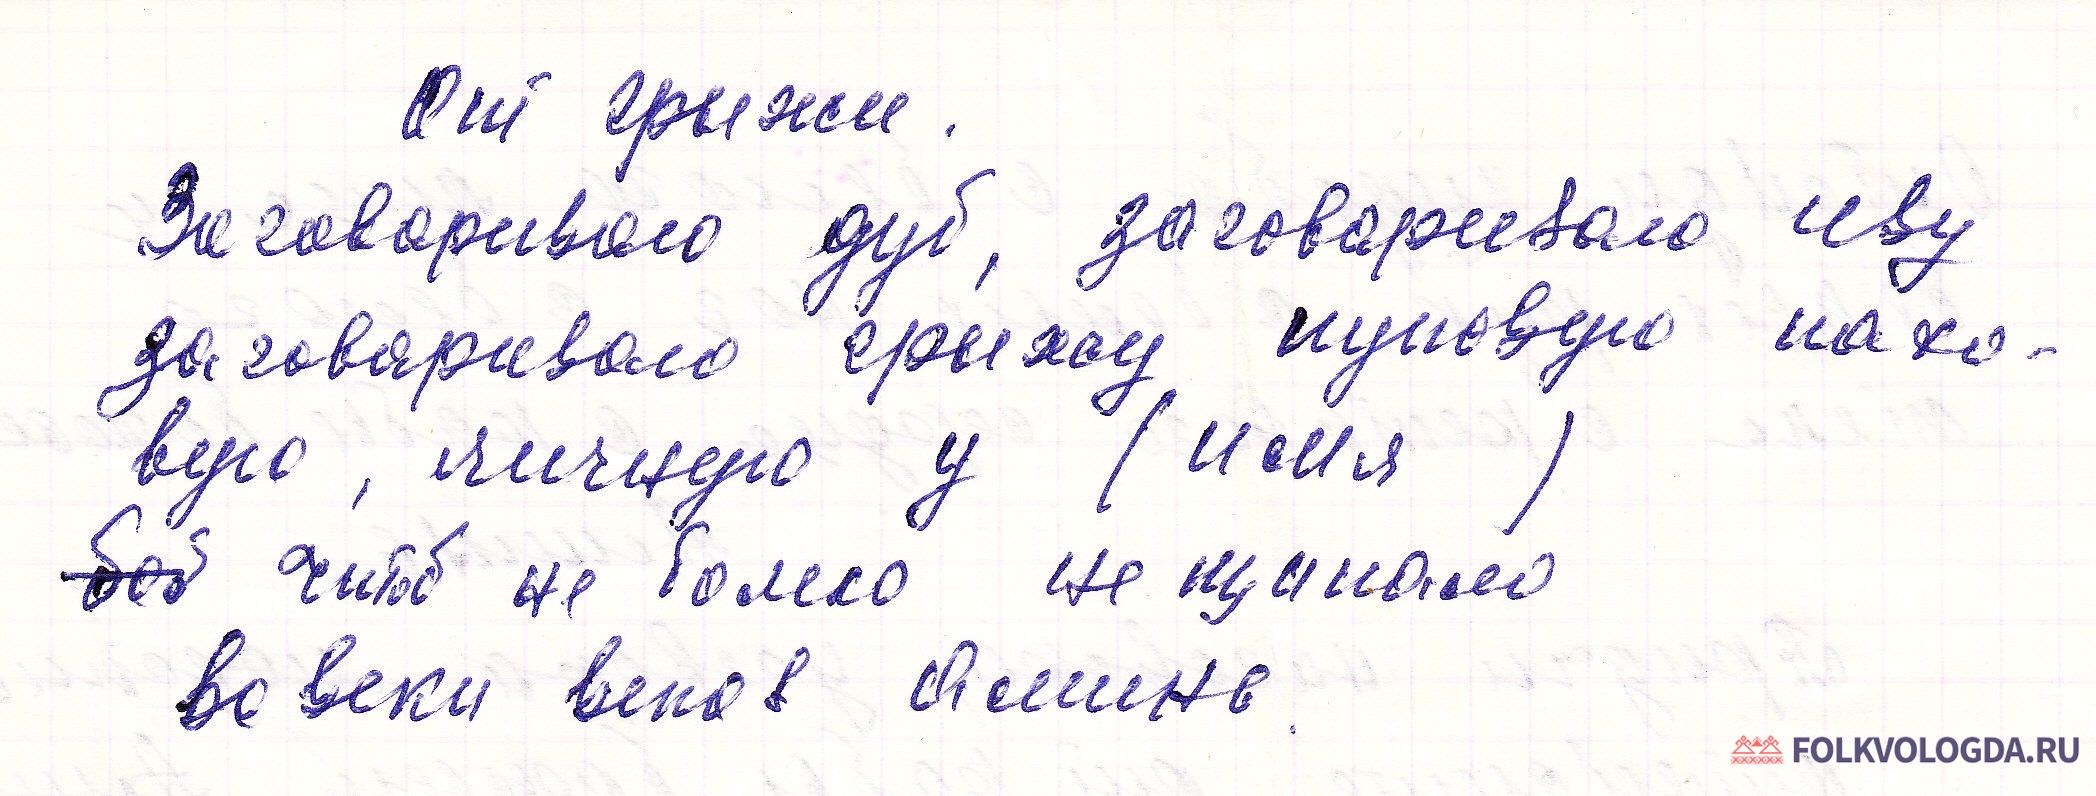 От грыжи.
Заговариваю дуб, заговариваю иву
заговариваю грыжу пуповую пахо-
вую, яичную у (имя)
боб читоб не болело не щипало
во веки веков Аминь.
FOLKVOLOGDA.RU